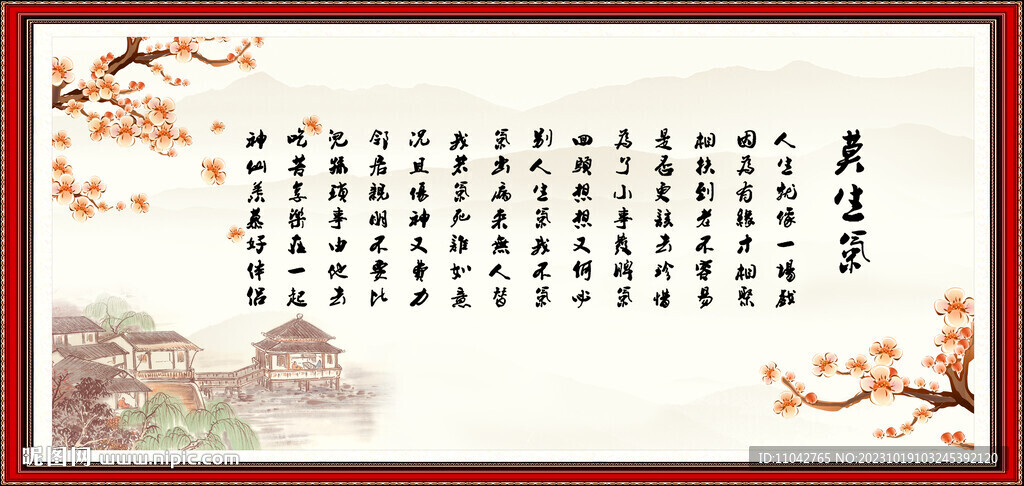 莫生氣
人生就像一場戲
因為有緣才相聚
相扶到老不容易
是否更該去珍惜
為了小事發脾氣
回頭想想又何必
別人生氣我不氣
氣出病來無人替
我若氣死誰如意
況且傷神又費力
鄰居親朋不要比
兒孫瑣事由他去
吃苦享樂在一起
神仙羨慕好伴侶
昵图网 www.nipic.com
ID:11042765 NO:20231019103245392120